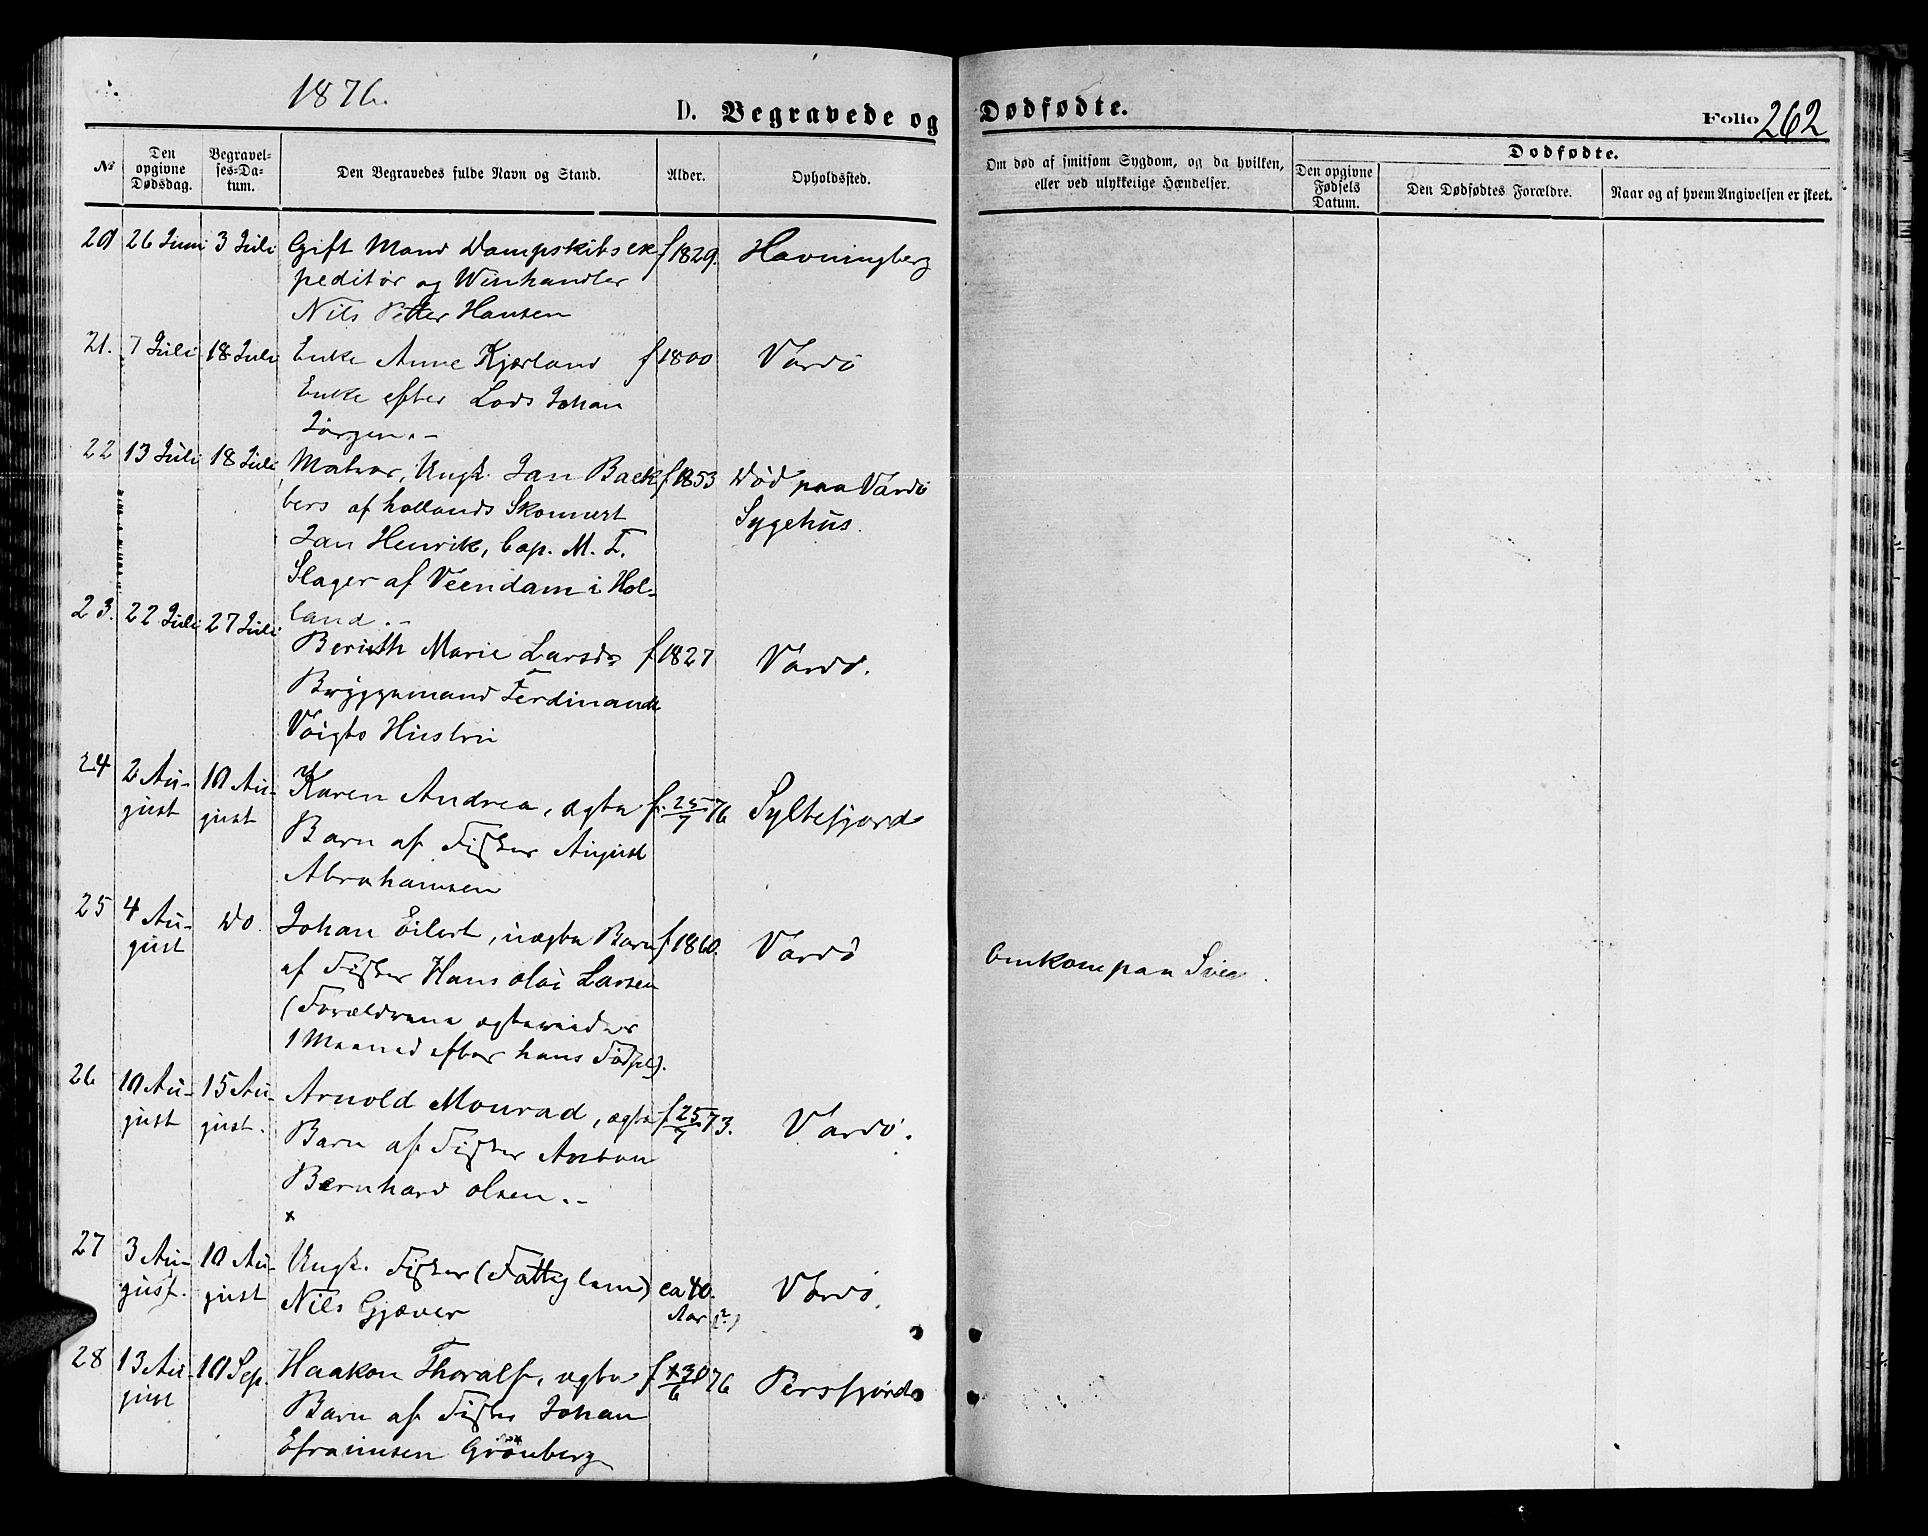 1876.
D. Begravede og Dødfødte.
Folio 262
No
Den opgivne Dødsdag.
Begravelses-Datum.
Den Begravedes fulde Navn og Stand.
Alder.
Opholdssted.
Om død af smitsom Sygdom, og da hvilken, eller ved ulykkelige Hændelser.
Dødfødte.
Den opgivne Fødsels Datum.
Den Dødfødtes Forældre.
Naar og af hvem Angivelsen er skeet.
20 26 Juni 3 Juli Gift Mand Dampskibsex f 1829. Havningberg
peditør og Winhandler
Nils Petter Hansen
21. 7 Juli 18 Juli Enke Anne Kjærland f 1800 Vardö
Enke efter Lods Johan
Jörgen.-
22 13 Juli 18 Juli Matros, Ungk. Jan Back f 1853 Død paa Vardö
bers af hollands Skonnert Sygehus.
Jan Henrik, Cap. M. T.
Slager af Veendam i Hol-
land.-
23. 22 Juli 27 Juli Berith Marie Larsd. f 1827 Vardö.
Bryggemand Ferdinand
Voigts Hustru
24 2 Au- 10 Au- Karen Andrea, ægte f. 25/7 76 Syltefjord
gust gust Barn af Fisker August
Abrahamsen
25 4 Au- Do. Johan Eilert, uægte Barn f 1860. Vardö Omkom paa Søen.
gust af Fisker Hans Olai Larsen
(Forældrene ægteviedes
1 Maaned efter hans Fødsel).
26 10 Au- 15 Au- Arnold Monrad, ægte f 25/7 73. Vardö.
gust gust. Barn af Fisker Anton
Bernhard Olsen.-
x
27 3 Au- 10 Au- Ungk. Fisker (Fattiglem) ca 40. Vardö.
gust. gust Nils Gjæver Aar (?)
28 13 Au- 10 Sep. Haakon Thoralf, ægte f x30/6 76 Persfjord
gust Barn af Fisker Johan
Efraimsen Grönberg